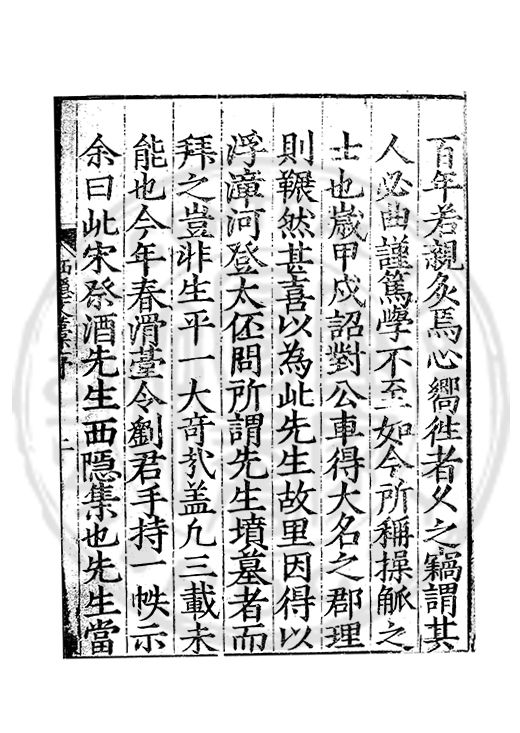 百年若親炙焉心嚮徃者乆之竊謂其
人必曲謹篤學不至如今所稱操觚之
士也嵗甲戍詔對公車得大名之郡理
則囅然甚喜以為此先生故里因得以
浮漳河登太伾問所謂先生墳墓者而
拜之豈非生平一大竒㢤盖九三載未
能也今年春滑䑓令劉君手持一帙示
余曰此宋祭酒先生西隱集也先生當